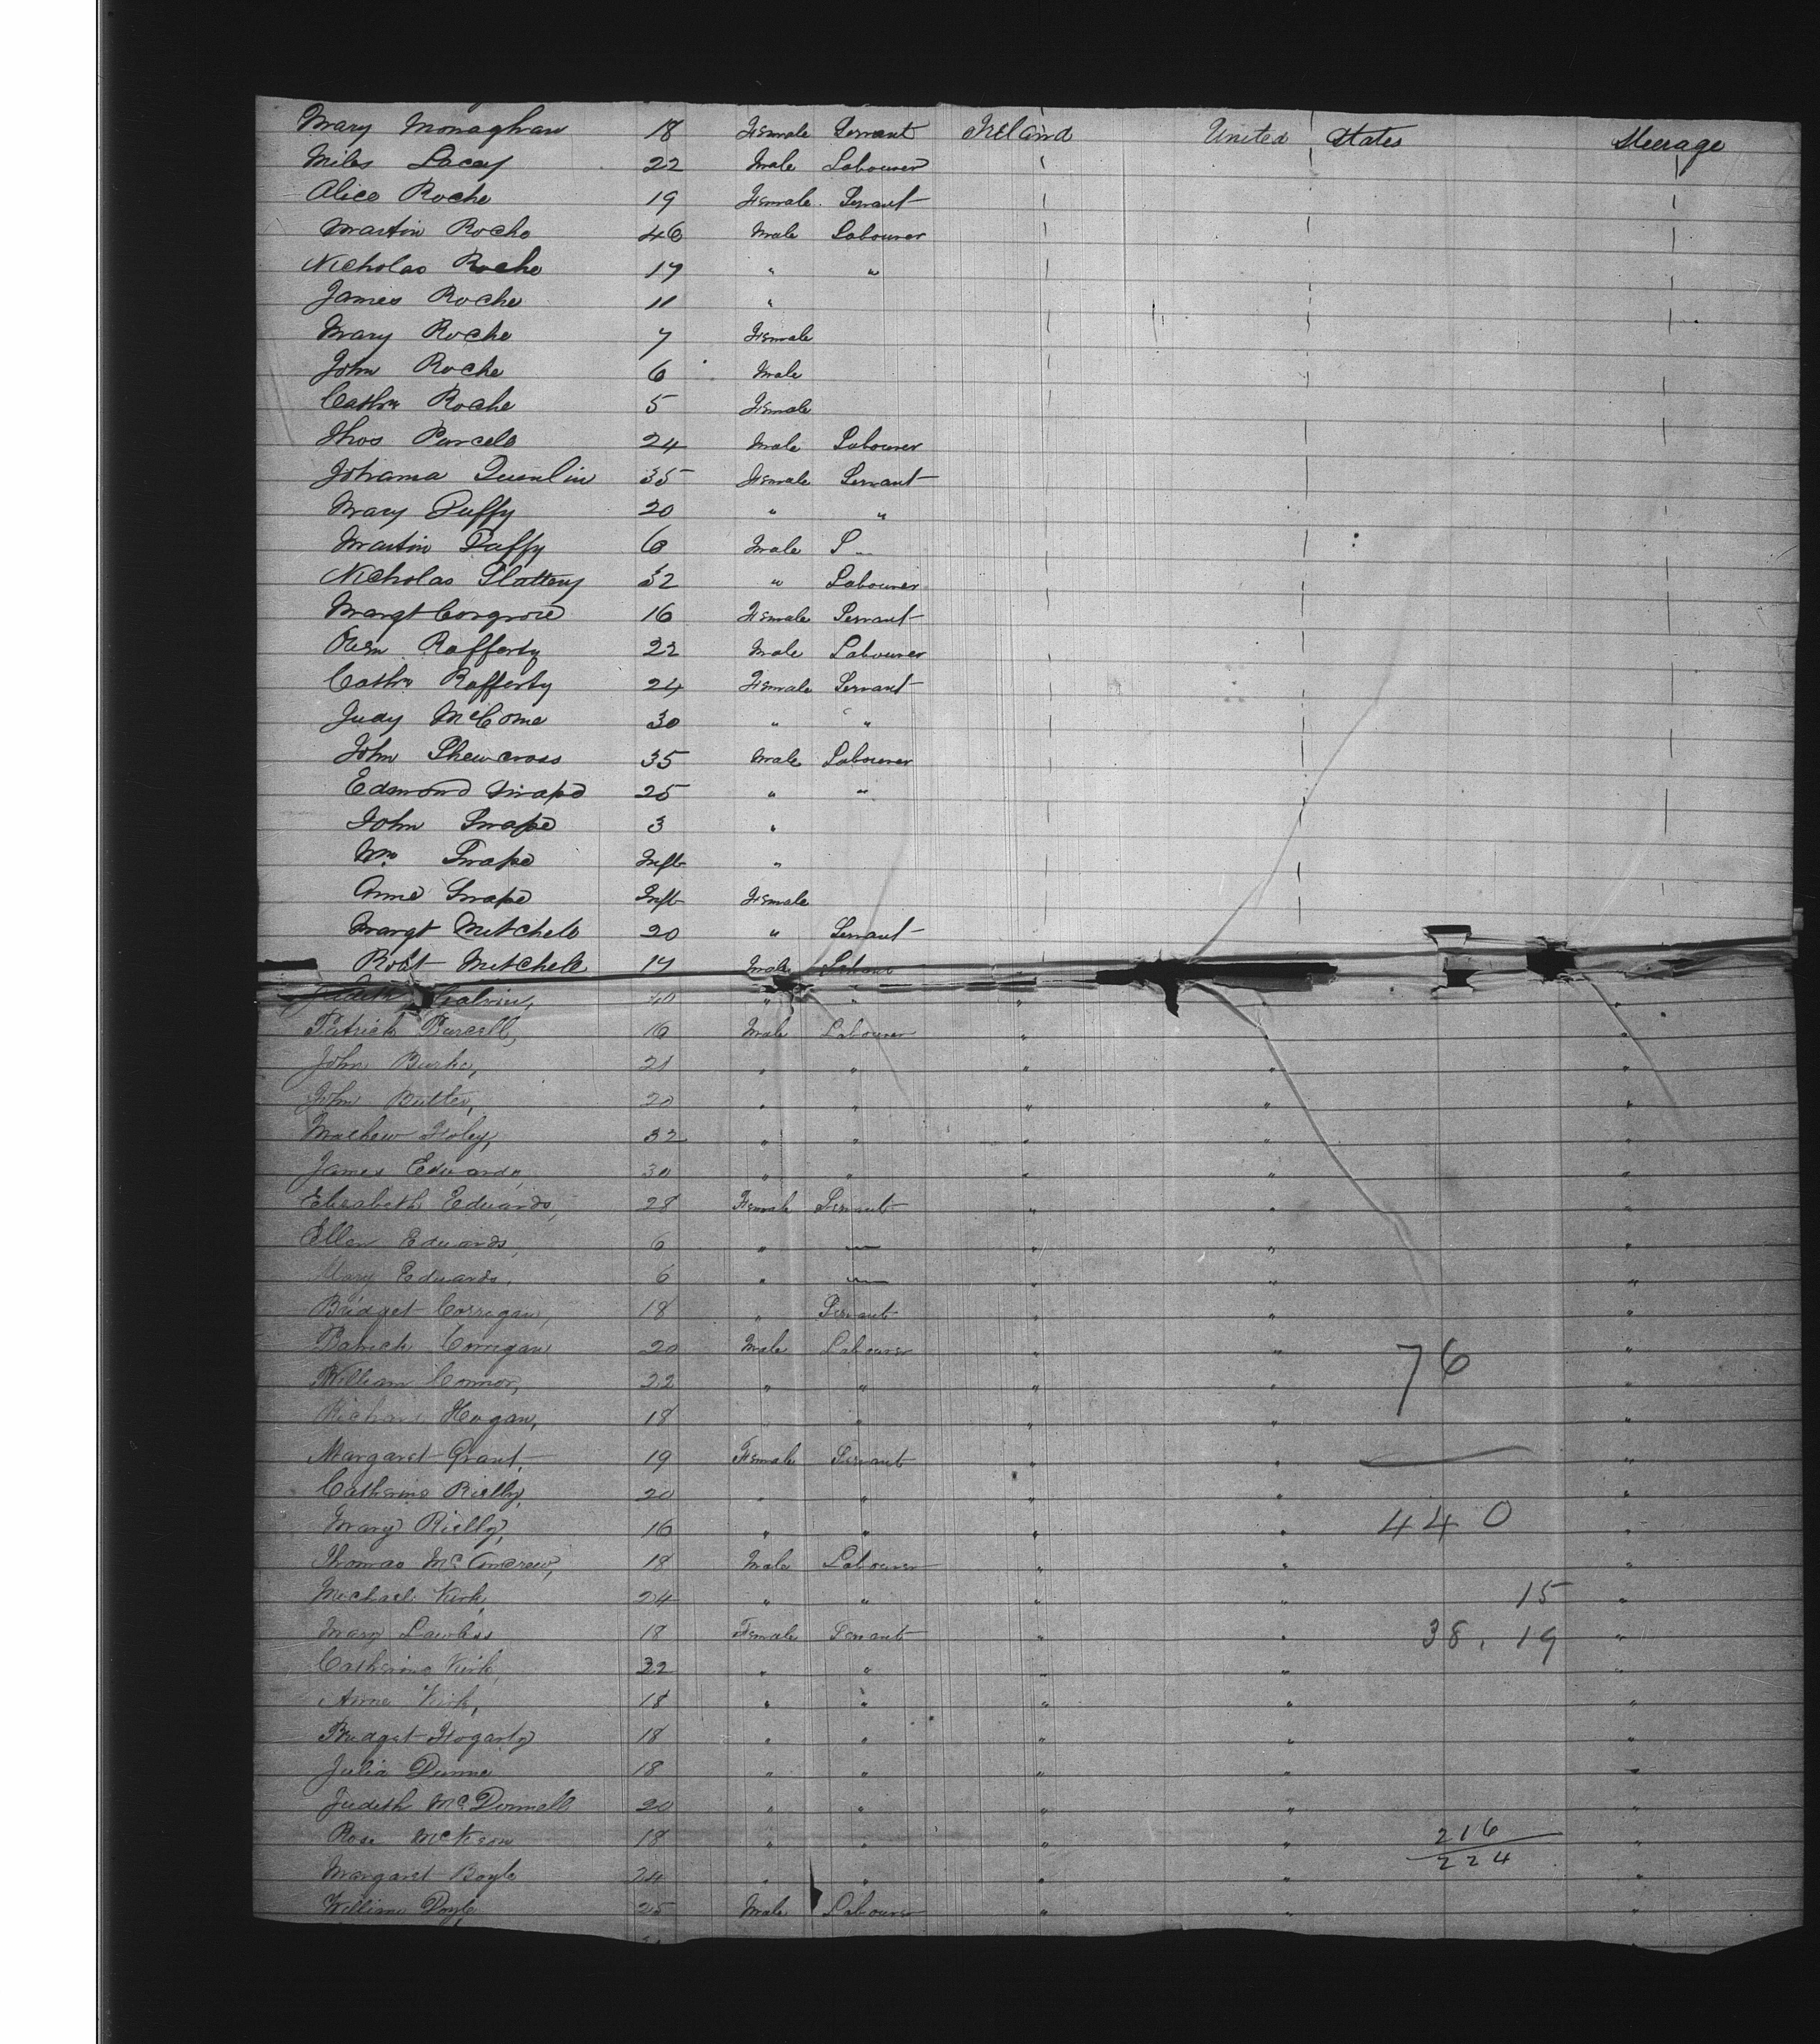 Mary Monaghan 18 Female Servant Ireland United States Steerage
Miles Lacey 22 Male Labourer
Alice Roche 19 Female Servant
Martin Roche 46 Male Labourer
Nicholas Roche 17 " "
James Roche 11 "
Mary Roche 7 Female
John Roche 6 Male
Cathn Roche 5 Female
Thos Purcell 24 Male Labourer
Johanna Quinlin 35 Female Servant
Mary Duffy 20 " "
Martin Duffy 6 Male
Nicholas Slattery 32 " Labourer
Margt Cosgrove 16 Female Servant
Owen Rafferty 22 Male Labourer
Cathn Rafferty 24 Female Servant
Judy McCome 30 " "
John Shewcross 35 Male Labourer
Edmond Snape 25 " "
John Snape 3 "
Wm Snape Inft "
Anne Snape Inft Female
Margt Mitchell 20 " Servant
Robt Mitchell 17 Male
Judith Galvin, 20 " " " "
Patrick Purcell, 16 Male Labourer " " "
John Burke, 21 " " " " "
John Butler, 20 " " " " "
Mathew Foley, 32 " " " " "
James Edwards, 30 " " " " "
Elizabeth Edwards, 28 Female Servant " " "
Ellen Edwards, 6 " — " " "
Mary Edwards, 6 " — " " "
Bridget Corrigan, 18 " Servant " " "
Patrick Corrigan 20 Male Labourer " " 76 "
William Connor, 22 " " " " "
Richard Hogan, 18 " " " "
Margaret Grant, 19 Female Servant " " "
Catherine Rielly, 20 " " " " "
Mary Rielly, 16 " " " " 440 "
Thomas McAndrew, 18 Male Labourer " " "
Michael Kirk, 24 " " " " 15 "
Mary Lawless 18 Female Servant " " 38, 19 "
Catherine Kirk, 32 " " " " "
Anne Kirk, 18 " " " " "
Bridget Fogarty 18 " " " " "
Julia Dunne 18 " " " " "
Judith McDonnell 20 " " " " "
Rose McKeon 18 " " " " 216 "
224
Margaret Boyle 24 " " " " "
William Doyle 25 Male Labourer " " "